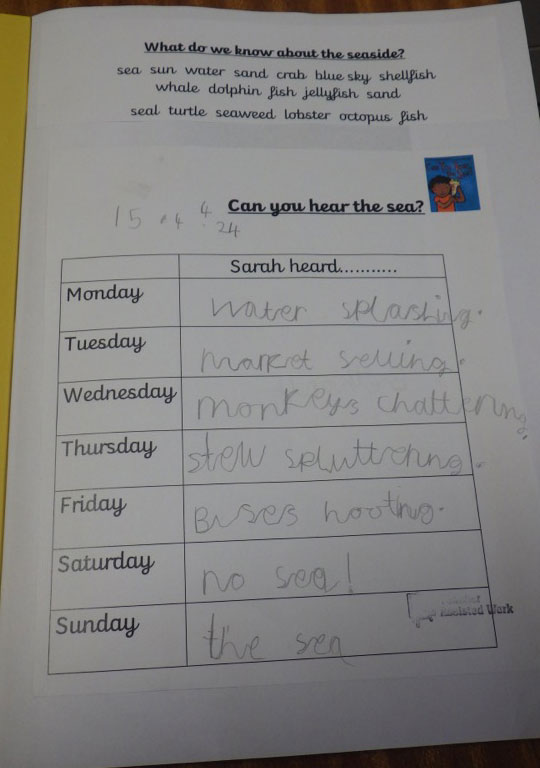 What do we know about the seaside?
sea sun water sand crab blue sky shellfish
whale dolphin fish jellyfish sand
seal turtle seaweed lobster octopus fish
15 . 4 . 24
4
Can you hear the sea?
Sarah heard...........
Monday water splashing.
Tuesday market selling.
Wednesday monkeys chattering.
Thursday stew spluttering.
Friday Buses hooting.
Saturday no sea!
Sunday the sea
Assisted Work